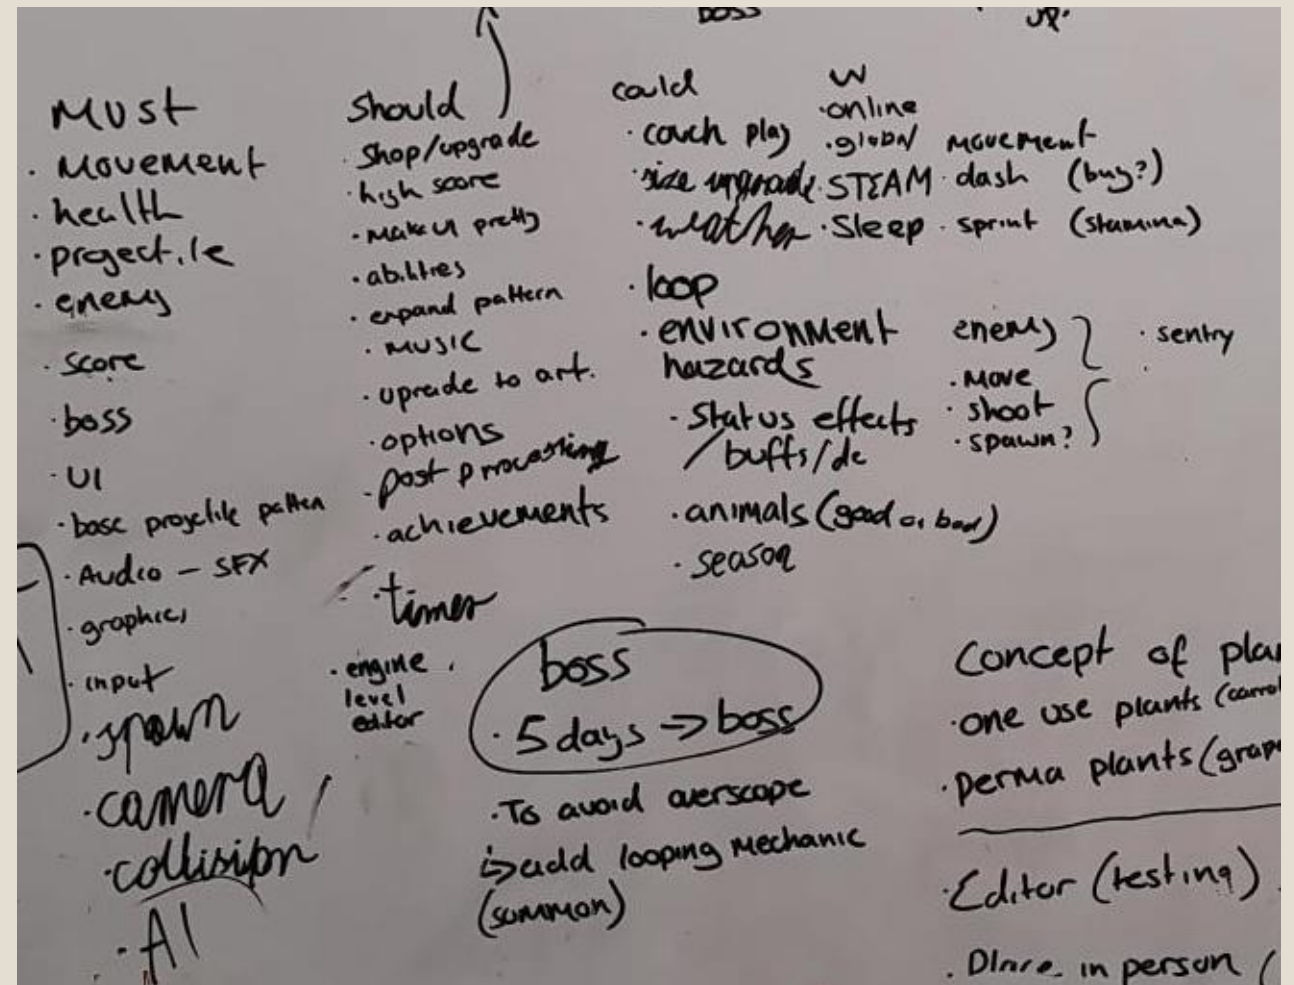 boss
up.
Must
. Movement
. health
. project.le
. enemy
. score
. boss
. UI
. basc projectile patten
. Audio – SFX
. graphics
. input
. spawn
. camera
. collision
. AI
Should
. Shop/upgrade
. high score
. make UI pretty
. abilities
. expand pattern
. MUSIC
. uprade to art.
. options
. post processing
. achievements
. timer
. engine
level
editor
could
. couch play
. size upgrade
. weather
. loop
. environment
hazards
. Status effects
/buffs/de
. animals (good or bad)
. season
W
. online
. STEAM
. Sleep
movement
. dash (buy?)
. sprint (stamina)
enemy
. Move
. shoot
. spawn?
. sentry
boss
. 5 days => boss
. To avoid overscope
↳ add looping mechanic
(summon)
Concept of plan
. one use plants (carro
. perma plants (grap
. Editor (testing)
. in person (